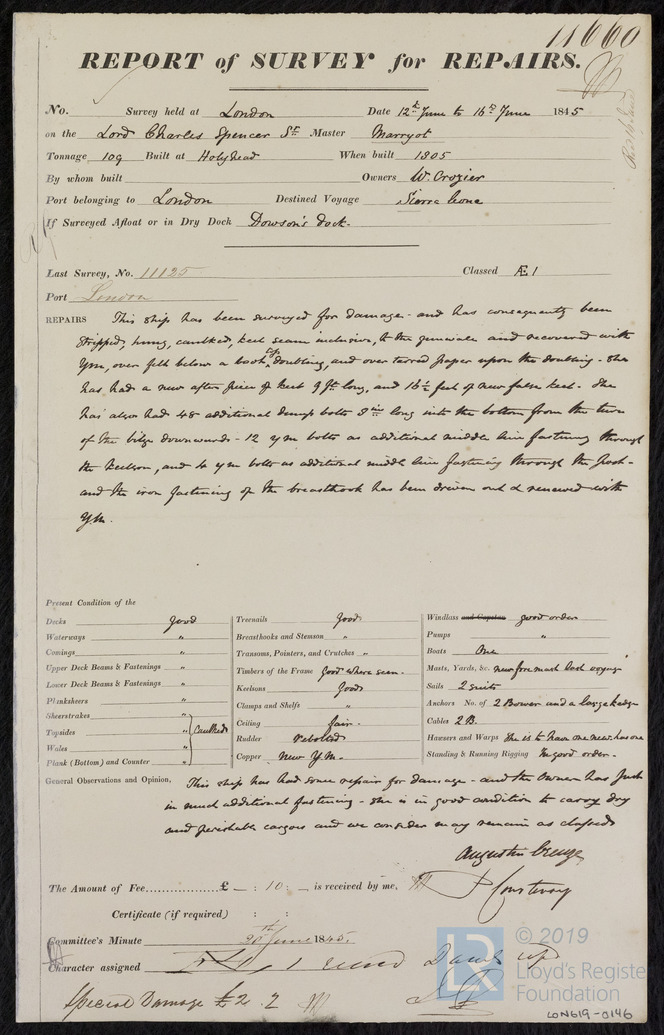 11660
REPORT of SURVEY for REPAIRS.
No. Survey held at London Date 12th June to 16th June 1845
on the Lord Charles Spencer Sr Master Marryot
Tonnage 109 Built at Holyhead When built 1805
By whom built Owners W. Crozier
Port belonging to London Destined Voyage Sierra Leona
If Surveyed Afloat or in Dry Dock Dowson's dock.
Last Survey, No. 11125 Classed Æ 1
Port London
REPAIRS This ship has been surveyed for damage - and has consequently been
stripped, hung, caulked, keel seam inclusive, to the gunwale and recovered with
Y.m, over felt below a doubling, and over tarred paper upon the doubling - She
has had a new after piece of keel 9 ft long, and 16½ feet of new false keel - She
has also had 48 additional dump bolts 9 ins long into the bottom from the turn
of the bilge downwards - 12 y.m bolts as additional middle line fastening through
the keelson, and 4 y.m bolts as additional middle line fastening through the hook -
and the iron fastening of the breasthook has been driven out & renewed with
Y.m.
Present Condition of the
Decks good
Waterways "
Comings "
Upper Deck Beams & Fastenings "
Lower Deck Beams & Fastenings "
Planksheers "
Sheerstrakes "
Topsides " Caulked
Wales "
Plank (Bottom) and Counter "
Treenails Good
Breasthooks and Stemson "
Transoms, Pointers, and Crutches "
Timbers of the Frame Good where seen.
Keelsons Good
Clamps and Shelfs "
Ceiling fair.
Rudder rebolted
Copper New Y.M.
Windlass and Capstan good order
Pumps "
Boats One
Masts, Yards, &c. new foremast last voyage
Sails 2 suits
Anchors No. of 2 Bower and a large kedge
Cables 2 B.
Hawsers and Warps She is to have one new. has one
Standing & Running Rigging In good order.
General Observations and Opinion, This ship has had some repair for damage - and the Owner has put
in much additional fastening - She is in good condition to carry dry
and perishable cargoes and we consider may remain as classed
Augustin Creuze
P Courtenay
The Amount of Fee £ — : 10 : — is received by me,
Certificate (if required) : :
Committee's Minute 20th June 1845.
Character assigned
Special Damage £2. 2
© 2019
LR Lloyd's Register
Foundation
LON619-0146